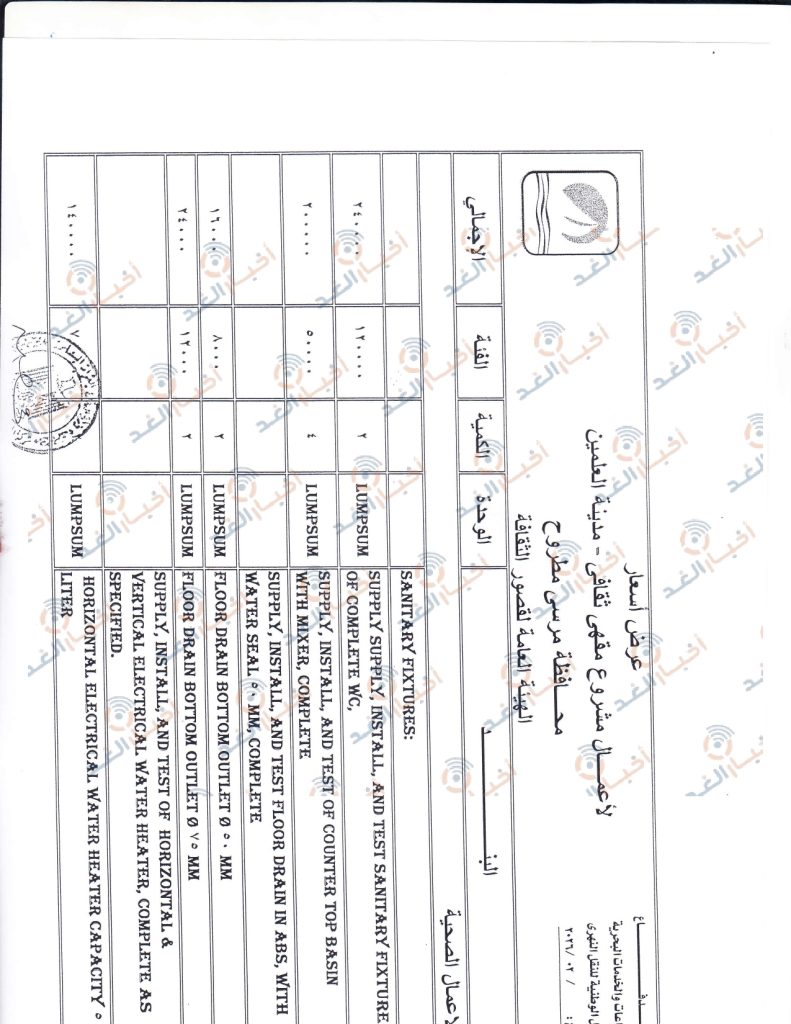 والخدمات البحرية
الوطنية للنقل النهرى
٢٠٢٦/ ٠٢ /
عرض أسعار
لأعمـــال مشروع مقهى ثقافى - مدينة العلمين
محـــافظة مرسى مطروح
الهيئة العامة لقصور الثقافة
البنــــــــد الوحدة الكمية الفئة الإجمالي
الصحية
SANITARY FIXTURES:
SUPPLY SUPPLY, INSTALL, AND TEST SANITARY FIXTURE
OF COMPLETE WC, LUMPSUM ٢ ١٢٠٠٠٠ ٢٤٠٠٠٠
SUPPLY, INSTALL, AND TEST OF COUNTER TOP BASIN
WITH MIXER, COMPLETE LUMPSUM ٤ ٥٠٠٠٠ ٢٠٠٠٠٠
SUPPLY, INSTALL, AND TEST FLOOR DRAIN IN ABS, WITH
WATER SEAL ٥٠ MM, COMPLETE
FLOOR DRAIN BOTTOM OUTLET Ø ٥٠ MM LUMPSUM ٢ ٨٠٠٠ ١٦٠٠٠
FLOOR DRAIN BOTTOM OUTLET Ø ٧٥ MM LUMPSUM ٢ ١٢٠٠٠ ٢٤٠٠٠
SUPPLY, INSTALL, AND TEST OF HORIZONTAL &
VERTICAL ELECTRICAL WATER HEATER, COMPLETE AS
SPECIFIED.
HORIZONTAL ELECTRICAL WATER HEATER CAPACITY
LITER LUMPSUM ١٤٠٠٠٠
أخبار الغد